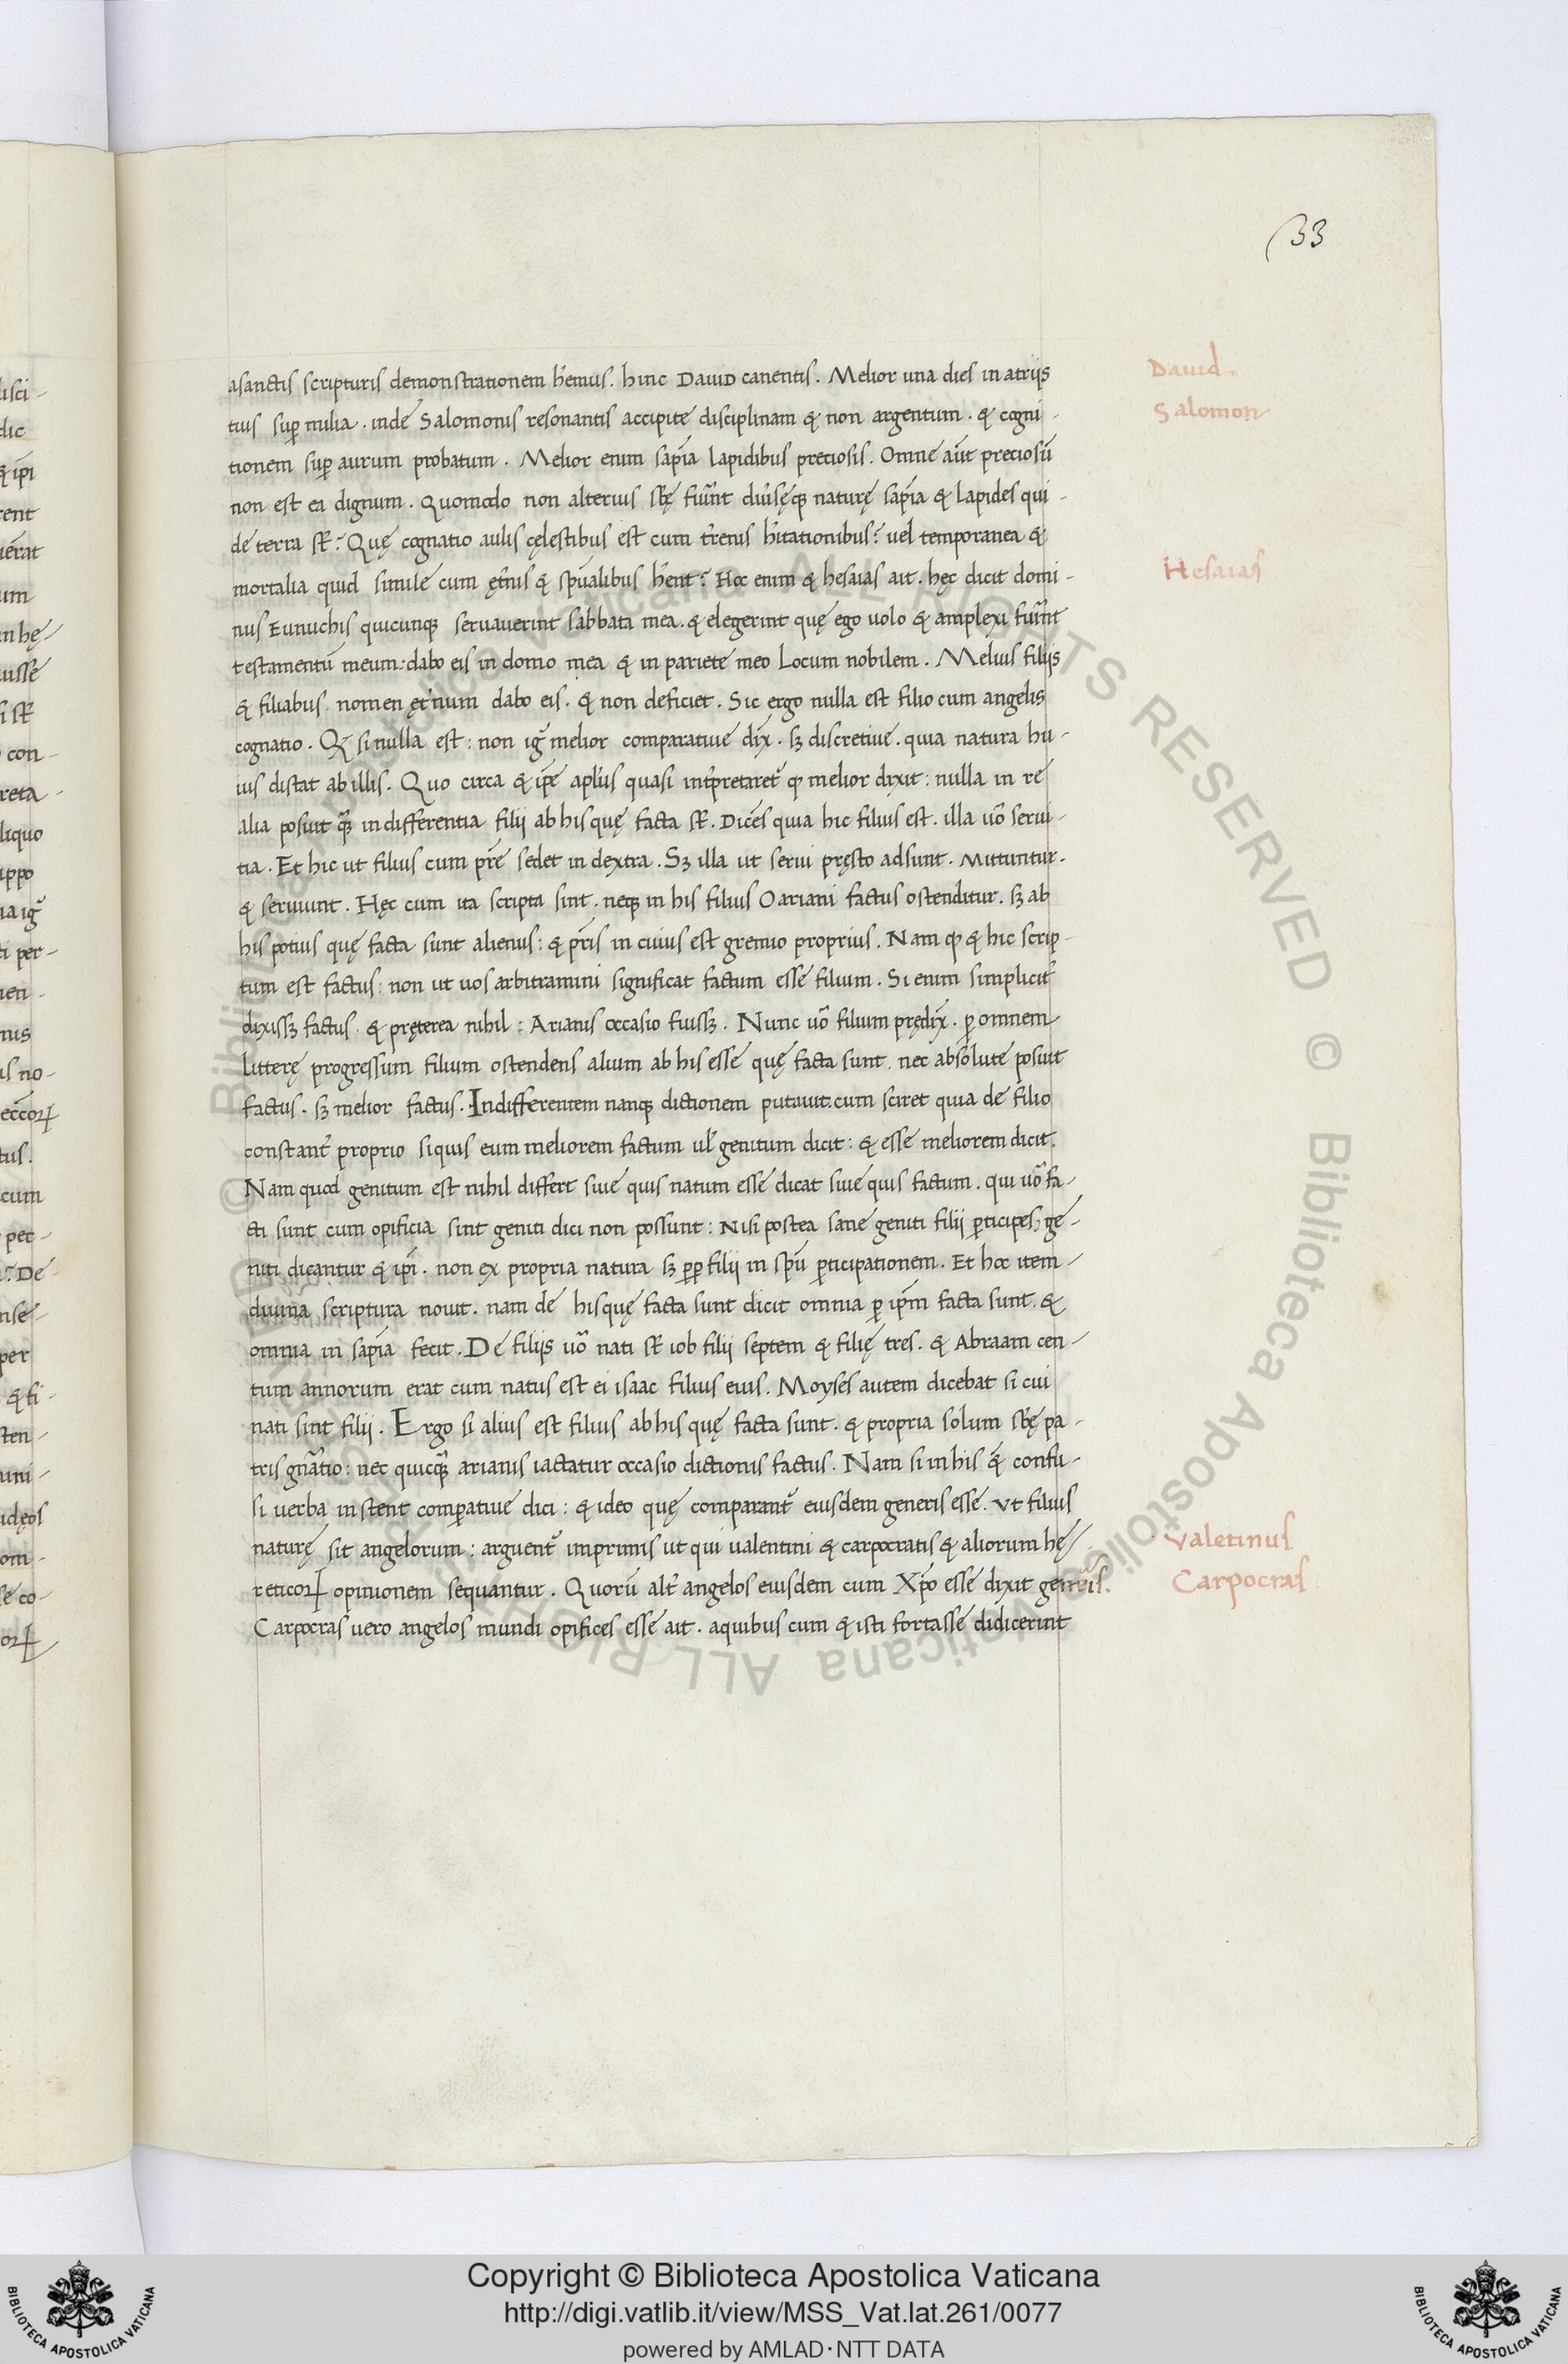 33
asanctis scripturis demonstrationem h̄emus. hinc DauiD canentis. Melior una dies in atriis
tuis sup̱ milia. inde Salomonis resonantis accipite disciplinam & non argentum. & cogni-
tionem sup̱ aurum probatum. Melior enim sap̄ia lapidibus preciosis. Omne aūt preciosū
non est ei dignum. Quomodo non alterius sb̄ę fuer̄nt diu̓sęq; naturę sap̄ia & lapides qui-
de terra sꝶ? Quę cognatio aulis cęlestibus est cum t̓renis h̄itationibus? uel temporanea &
mortalia quid simile cum ęt̓nis & sp̄ualibus h̄ent? Hoc enim & hesaias ait. hęc dicit domi-
nus Eunuchis quicunq; seruauerint sabbata mea. & elegerint quę ego uolo & amplexi fuer̄nt
testamentū meum: dabo eis in domo mea & in pariete meo Locum nobilem. Melius filiis
& filiabus. nomen ęt̓num dabo eis. & non deficiet. Sic ergo nulla est filio cum angelis
cognatio. Qꝫ si nulla est: non ig̓ melior comparatiue dix̄. sꝫ discretiue. quia natura hu-
ius distat ab illis. Quo circa & ip̄e apl̓us quasi int̓pretaret̓ ꝙ melior dixit: nulla in re
alia posuit qꝫ indifferentia filii ab his quę facta sꝶ. Dicēs quia hic filius est. illa uō serui-
tia. Et hic ut filius cum pr̄e sedet in dextra. Sꝫ illa ut serui pręsto adsunt. Mittuntur.
& seruiunt. Hęc cum ita scripta sint. neq; in his filius O ariani factus ostenditur. sꝫ ab
his potius quę facta sunt alienus: & pr̄is in cuius est gremio proprius. Nam ꝙ & hic scrip-
tum est factus: non ut uos arbitramini significat factum esse filium. Si enim simplicit̓
dixissꝫ factus. & pręterea nihil: Arianis occasio fuissꝫ. Nunc uō filium prędix̄. ꝑ omnem
litterę progressum filium ostendens alium ab his esse quę facta sunt. nec absolute posuit
factus. sꝫ melior factus. Indifferentem nanq; dictionem putauit. cum sciret quia de filio
constant̓ proprio siquis eum meliorem factum ul̓ genitum dicit: & esse meliorem dicit.
Nam quod genitum est nihil differt siue quis natum esse dicat siue quis factum. qui uō fa-
cti sunt cum opificia sint geniti dici non possunt: Nisi postea sane geniti filii ꝑticipes, ge-
niti dicantur & ip̄i. non ex propria natura sꝫ ꝓp̱ filii in sp̄u ꝑticipationem. Et hoc item-
diuina scriptura nouit. nam de hisquę facta sunt dicit omnia ꝑ ip̄m facta sunt. &
omnia in sap̄ia fecit. De filiis uō nati sꝶ iob filii septem & filię tres. & Abraam cen-
tum annorum erat cum natus est ei isaac filius eius. Moyses autem dicebat si cui
nati sint filii. Ergo si alius est filius ab his quę facta sunt. & propria solum sb̄ę pa-
tris gn̄atio: nec quicqꝫ arianis iactatur occasio dictionis factus. Nam si in his q̄ confu-
si uerba instent comꝑatiue dici: & ideo quę comparant̓ eiusdem generis esse. ut filius
naturę sit angelorum: arguent̓ imprimis ut qui ualentini & carpocratis & aliorum hę-
reticoꝝ opinionem sequantur. Quorū alt̓ angelos eiusdem cum Xp̄o esse dixit generis.
Carpocras uero angelos mundi opifices esse ait. aquibus cum & isti fortasse didicerint
Dauid.
Salomon
Hesaias
Valetinus
Carpocras
Copyright © Biblioteca Apostolica Vaticana
http://digi.vatlib.it/view/MSS_Vat.lat.261/0077
powered by AMLAD·NTT DATA